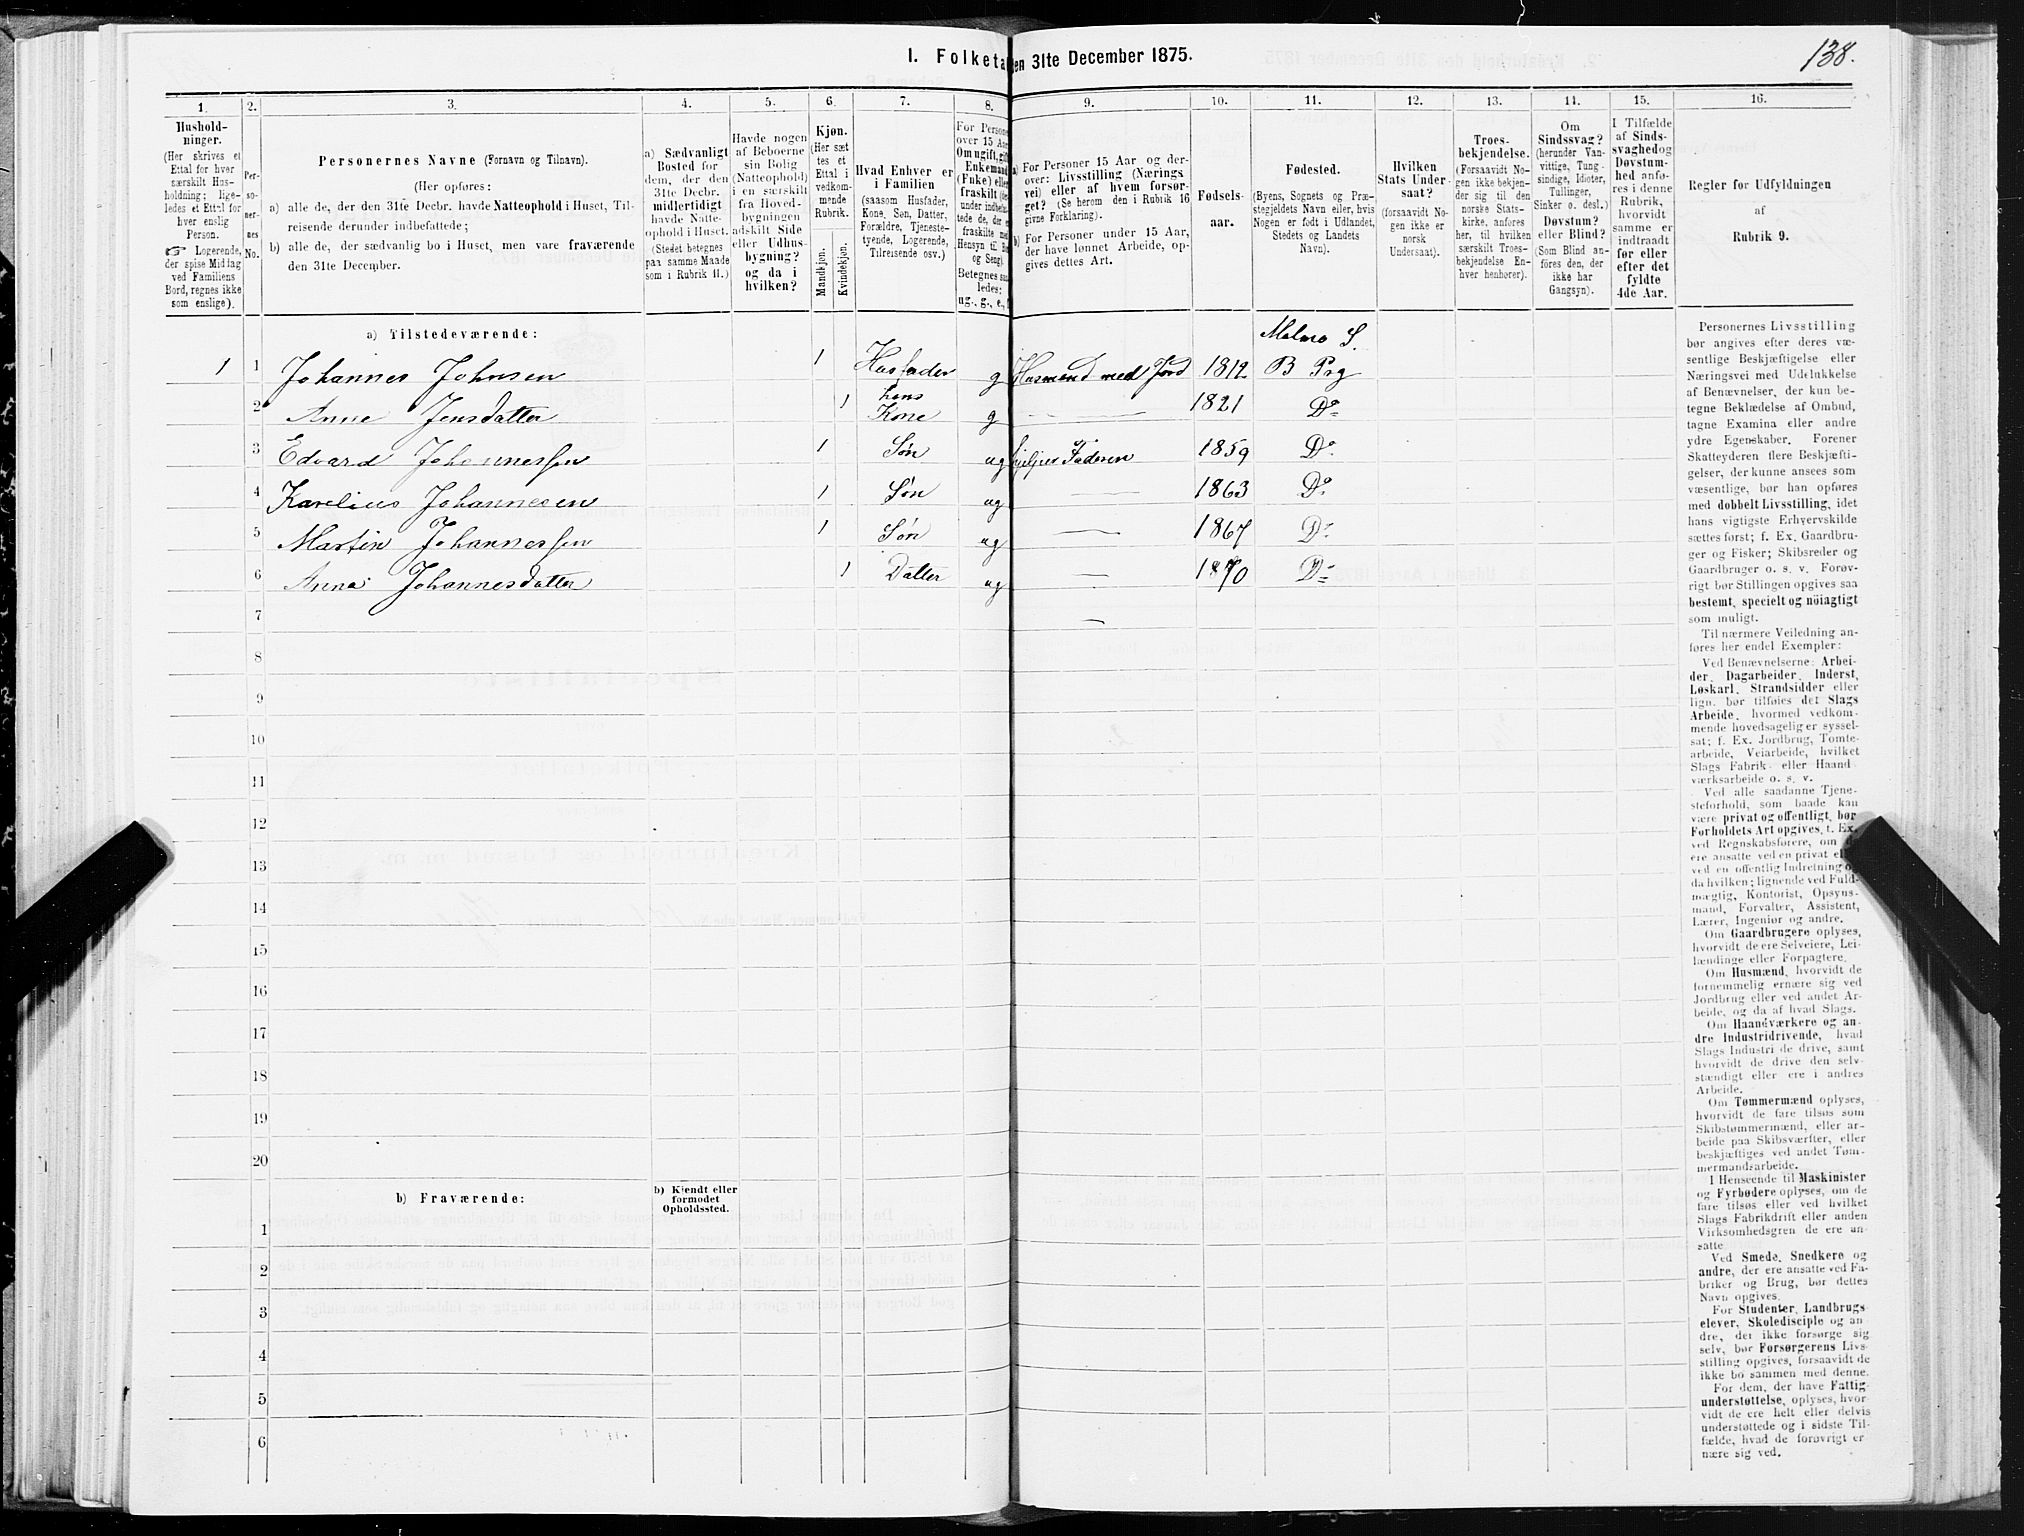 I. Folketa en 31te December 1875.
138.
1. 2. 3. 4. 5. 6. 7. 8. 9. 10. 11. 12. 13. 14. 15. 16.
Hushold-
ninger.
(Her skrives et
Ettal for hver
særskilt Hus-
holdning; lige-
ledes et Ettal for
hver enslig
Person.
☞ Logerende,
der spise Middag
ved Familiens
Bord, regnes ikke
som enslige).
Per-
so-
ner-
nes
No.
Personernes Navne (Fornavn og Tilnavn).
(Her opføres:
a) alle de, der den 31te Decbr. havde Natteophold i Huset, Til-
reisende derunder indbefattede;
b) alle de, der sædvanlig bo i Huset, men vare fraværende
den 31te December.
a) Sædvanligt
Bosted for
dem, der den
31te Decbr.
midlertidigt
havde Natte-
ophold i Huset.
(Stedet betegnes
paa samme Maade
som i Rubrik 11.)
Havde nogen
af Beboerne
sin Bolig
(Natteophold)
i en særskilt
fra Hoved-
bygningen
adskilt Side
eller Udhus-
bygning?
og da i
hvilken?
Kjøn.
(Her sæt
tes et
Ettal i
vedkom-
mende
Rubrik.
Mandkjøn.
Kvindekjøn.
Hvad Enhver er
i Familien
(saasom Husfader,
Kone, Søn, Datter,
Forældre, Tjeneste-
tyende, Logerende,
Tilreisende osv.)
For Persone
over 15 Aa
Om ugift, gift
Enkemand
(Enke) elle
fraskilt (de
under indbefat-
tede de, der e
fraskilte med
Hensyn til Bo
og Seng).
Betegnes saa
ledes:
ug., g., e., f
a) For Personer 15 Aar og der-
over: Livsstilling (Nærings
vei) eller af hvem forsør-
get? (Se herom den i Rubrik 16
givne Forklaring).
b) For Personer under 15 Aar,
der have lønnet Arbeide, op-
gives dettes Art.
Fødsels-
aar.
Fødested.
(Byens, Sognets og Præ-
stegjeldets Navn eller, hvis
Nogen er født i Udlandet,
Stedets og Landets
Navn).
Hvilken
Stats Under-
saat?
(forsaavidt No-
gen ikke er
norsk
Undersaat).
Troes-
bekjendelse.
(Forsaavidt No-
gen ikke bekjen-
der sig til den
norske Stats-
kirke, anføres
her, til hvilken
særskilt Troes-
bekjendelse En-
hver henhører).
Om
Sindssvag?
(herunder Van-
vittige, Tung-
sindige, Idioter,
Tullinger,
Sinker o. desl.)
Døvstum?
eller Blind?
(Som Blind an-
føres den, der
ikke har
Gangsyn).
I Tilfælde
af Sinds-
svaghed og
Døvstum-
hed anfø-
res i denne
Rubrik,
hvorvidt
samme er
indtraadt
før eller
efter det
fyldte
4de Aar.
Regler for Udfyldningen
af
Rubrik 9.
a) Tilstedeværende:
Malmo S.
1 1 Johannes Johnsen 1 Husfader g Husmand med Jord 1812 B Prg
2 Anne Jensdatter 1 hans Kone g — 1821 Do
3 Edvard Johannessen 1 Søn ug hjelper Faderen 1859 Do
4 Karelius Johannesen 1 Søn ug — 1863 Do
5 Martin Johannessen 1 Søn ug — 1867 Do
6 Anna Johannesdatter 1 Datter ug — 1870 Do
7 —
8
9
10
11
12
13
14
15
16
17
18
19
20
b) Fraværende:
b) Kjendt eller
formodet
Opholdssted.
1
2
3
4
5
6
Personernes Livsstilling
bør angives efter deres væ-
sentlige Beskjæftigelse eller
Næringsvei med Udelukkelse
af Benævnelser, der kun be-
tegne Beklædelse af Ombud,
tagne Examina eller andre
ydre Egenskaber. Forener
Skatteyderen flere Beskjæfti-
gelser, der kunne ansees som
væsentlige, bør han opføres
med dobbelt Livsstilling, idet
hans vigtigste Erhvervskilde
sættes først; f. Ex. Gaardbru-
ger og Fisker; Skibsreder og
Gaardbruger o. s. v. Forøv-
rigt bør Stillingen opgives saa
bestemt, specielt og nöiagtigt
som muligt.
Til nærmere Veiledning an-
føres her endel Exempler:
Ved Benævnelserne: Arbei-
der, Dagarbeider, Inderst,
Løskarl, Strandsidder eller
lign. bør tilføies det Slags
Arbeide, hvormed vedkom-
mende hovedsagelig er syssel-
sat; f. Ex. Jordbrug, Tomte-
arbeide, Veiarbeide, hvilket
Slags Fabrik- eller Haand-
værksarbeide o. s. v.
Ved alle saadanne Tjene-
steforhold, som baade kan
være privat og offentligt, bør
Forholdets Art opgives, t. Ex.
ved Regnskabsførere, om de
ere ansatte ved en privat el
ved en offentlig Indretning o
da hvilken; lignende ved Fuld-
mægtig, Kontorist, Opsyns-
mand, Forvalter, Assistent,
Lærer, Ingeniør og andre.
Om Gaardbrugere oplyses,
hvorvidt de ere Selveiere, Lei-
lændinge eller Forpagtere.
Om Husmænd, hvorvidt de
fornemmelig ernære sig ved
Jordbrug eller ved andet Ar-
beide, og da af hvad Slags.
Om Haandværkere og an-
dre Industridrivende, hvad
Slags Industri de drive, samt
hvorvidt de drive den selv-
stændigt eller ere i andres
Arbeide.
Om Tømmermænd oplyses,
hvorvidt de fare tilsøs som
Skibstømmermænd, eller ar-
beide paa Skibsværfter, eller
beskjæftiges ved andet Tøm-
mermandsarbeide.
I Henseende til Maskinister
og Fyrbødere oplyses, om de
fare tilsøs eller ved hvilket
Slags Fabrikdrift eller anden
Virksomhedsgren de ere an-
satte
Ved Smede, Snedkere og
andre, der ere ansatte ved Fa-
briker og Brug, bør dettes
Navn opgives.
For Studenter, Landbrugs
elever, Skoledisciple og an-
dre, der ikke forsørge sig
selv, bør Forsørgerens Livs-
stilling opgives, forsaavidt de
ikke bo sammen med denne.
For dem, der have Fattig-
understøttelse, oplyses, hvor-
vidt de ere helt eller delvis
understøttede og i sidste Til-
fælde, hvad de forøvrigt er
nære sig ved.